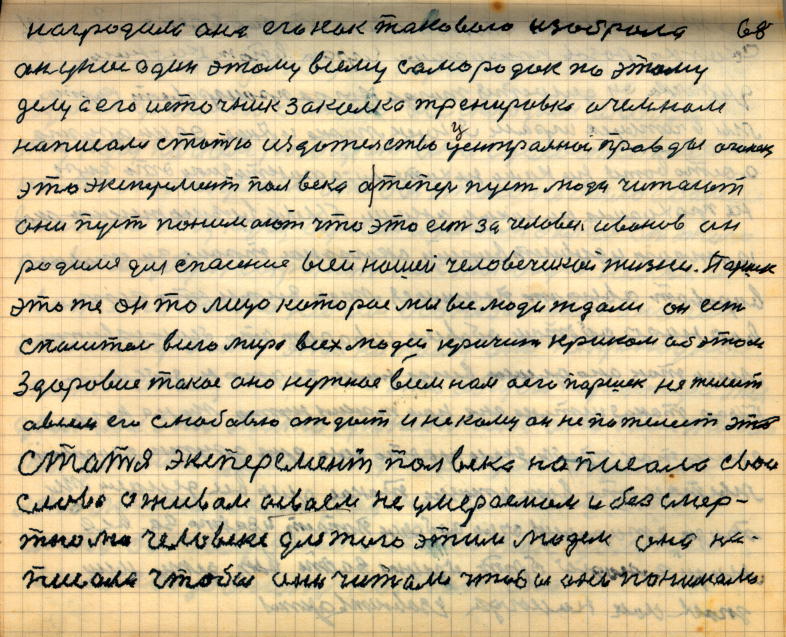 наградила она его как такового изобрала 68
он у нас один этому всему самородок по этому
делу а его источник закалка тренировка о чем нам
написала статю издателство централной правды огонек
это эксперемент пол века а тепер пуст люди читают
они пуст понимают что это ест за человек иванов он
родился для спасение всей нашей человеческой жизни. Паршек
это же он то лицо которое мы все люди ждали он ест
спаситель всего мира всех людей кричит криком об этом
Здоровие такое оно нужное всем нам а его паршек не жилеит
а всем его с любовю отдает и некому он не пожелеит это
Статя эксперемент пол века написала свои
слова о живам а неумераемом и без смер-
тном человеке для того этим людем она на-
писала чтобы они читали чтобы они понимали